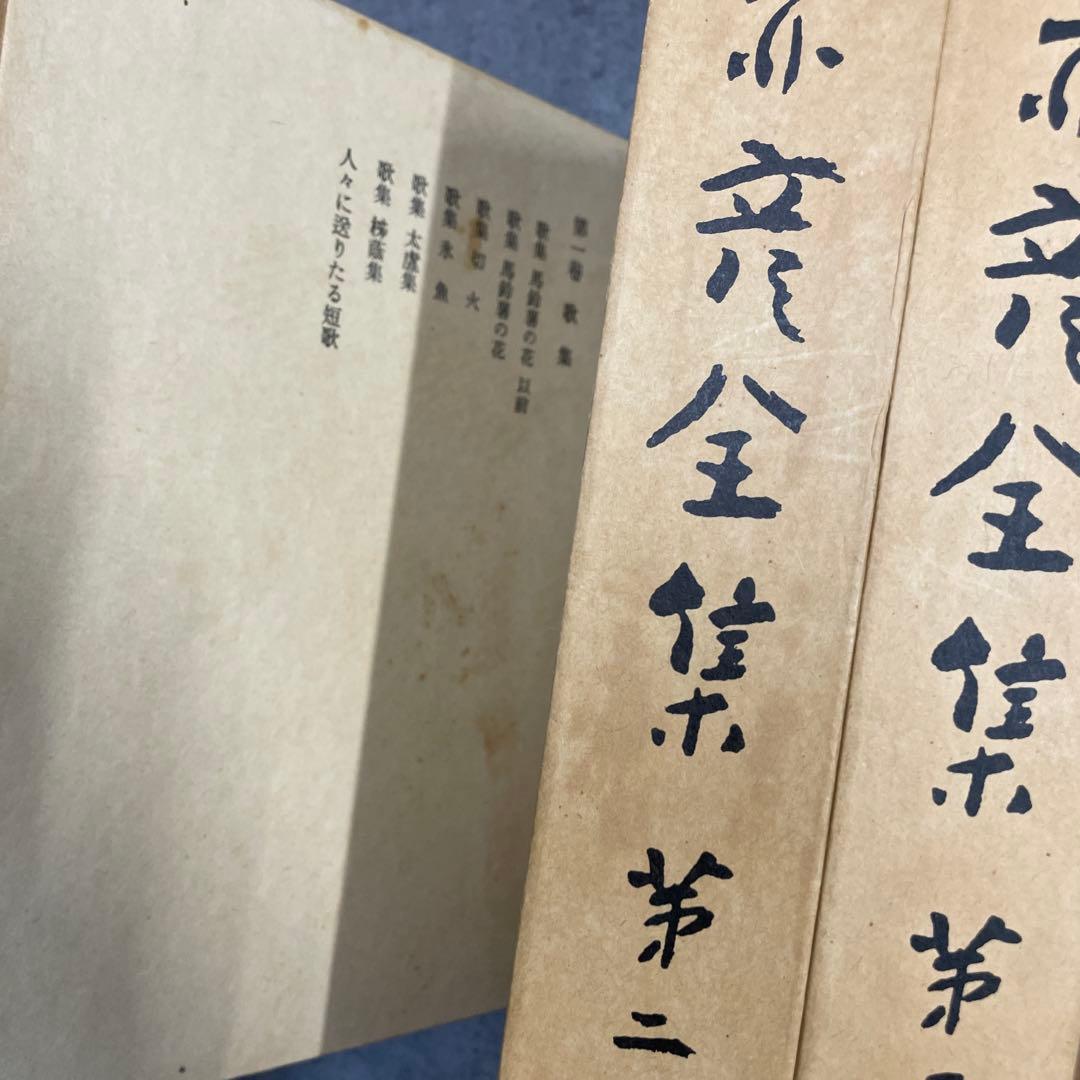 第一卷 歌集
歌集 馬鈴薯の花 以前
歌集 馬鈴薯の花
歌集 切火
歌集 氷魚
歌集 太虗集
歌集 柹蔭集
人々に送りたる短歌
赤彦全集 第二
赤彦全集 第